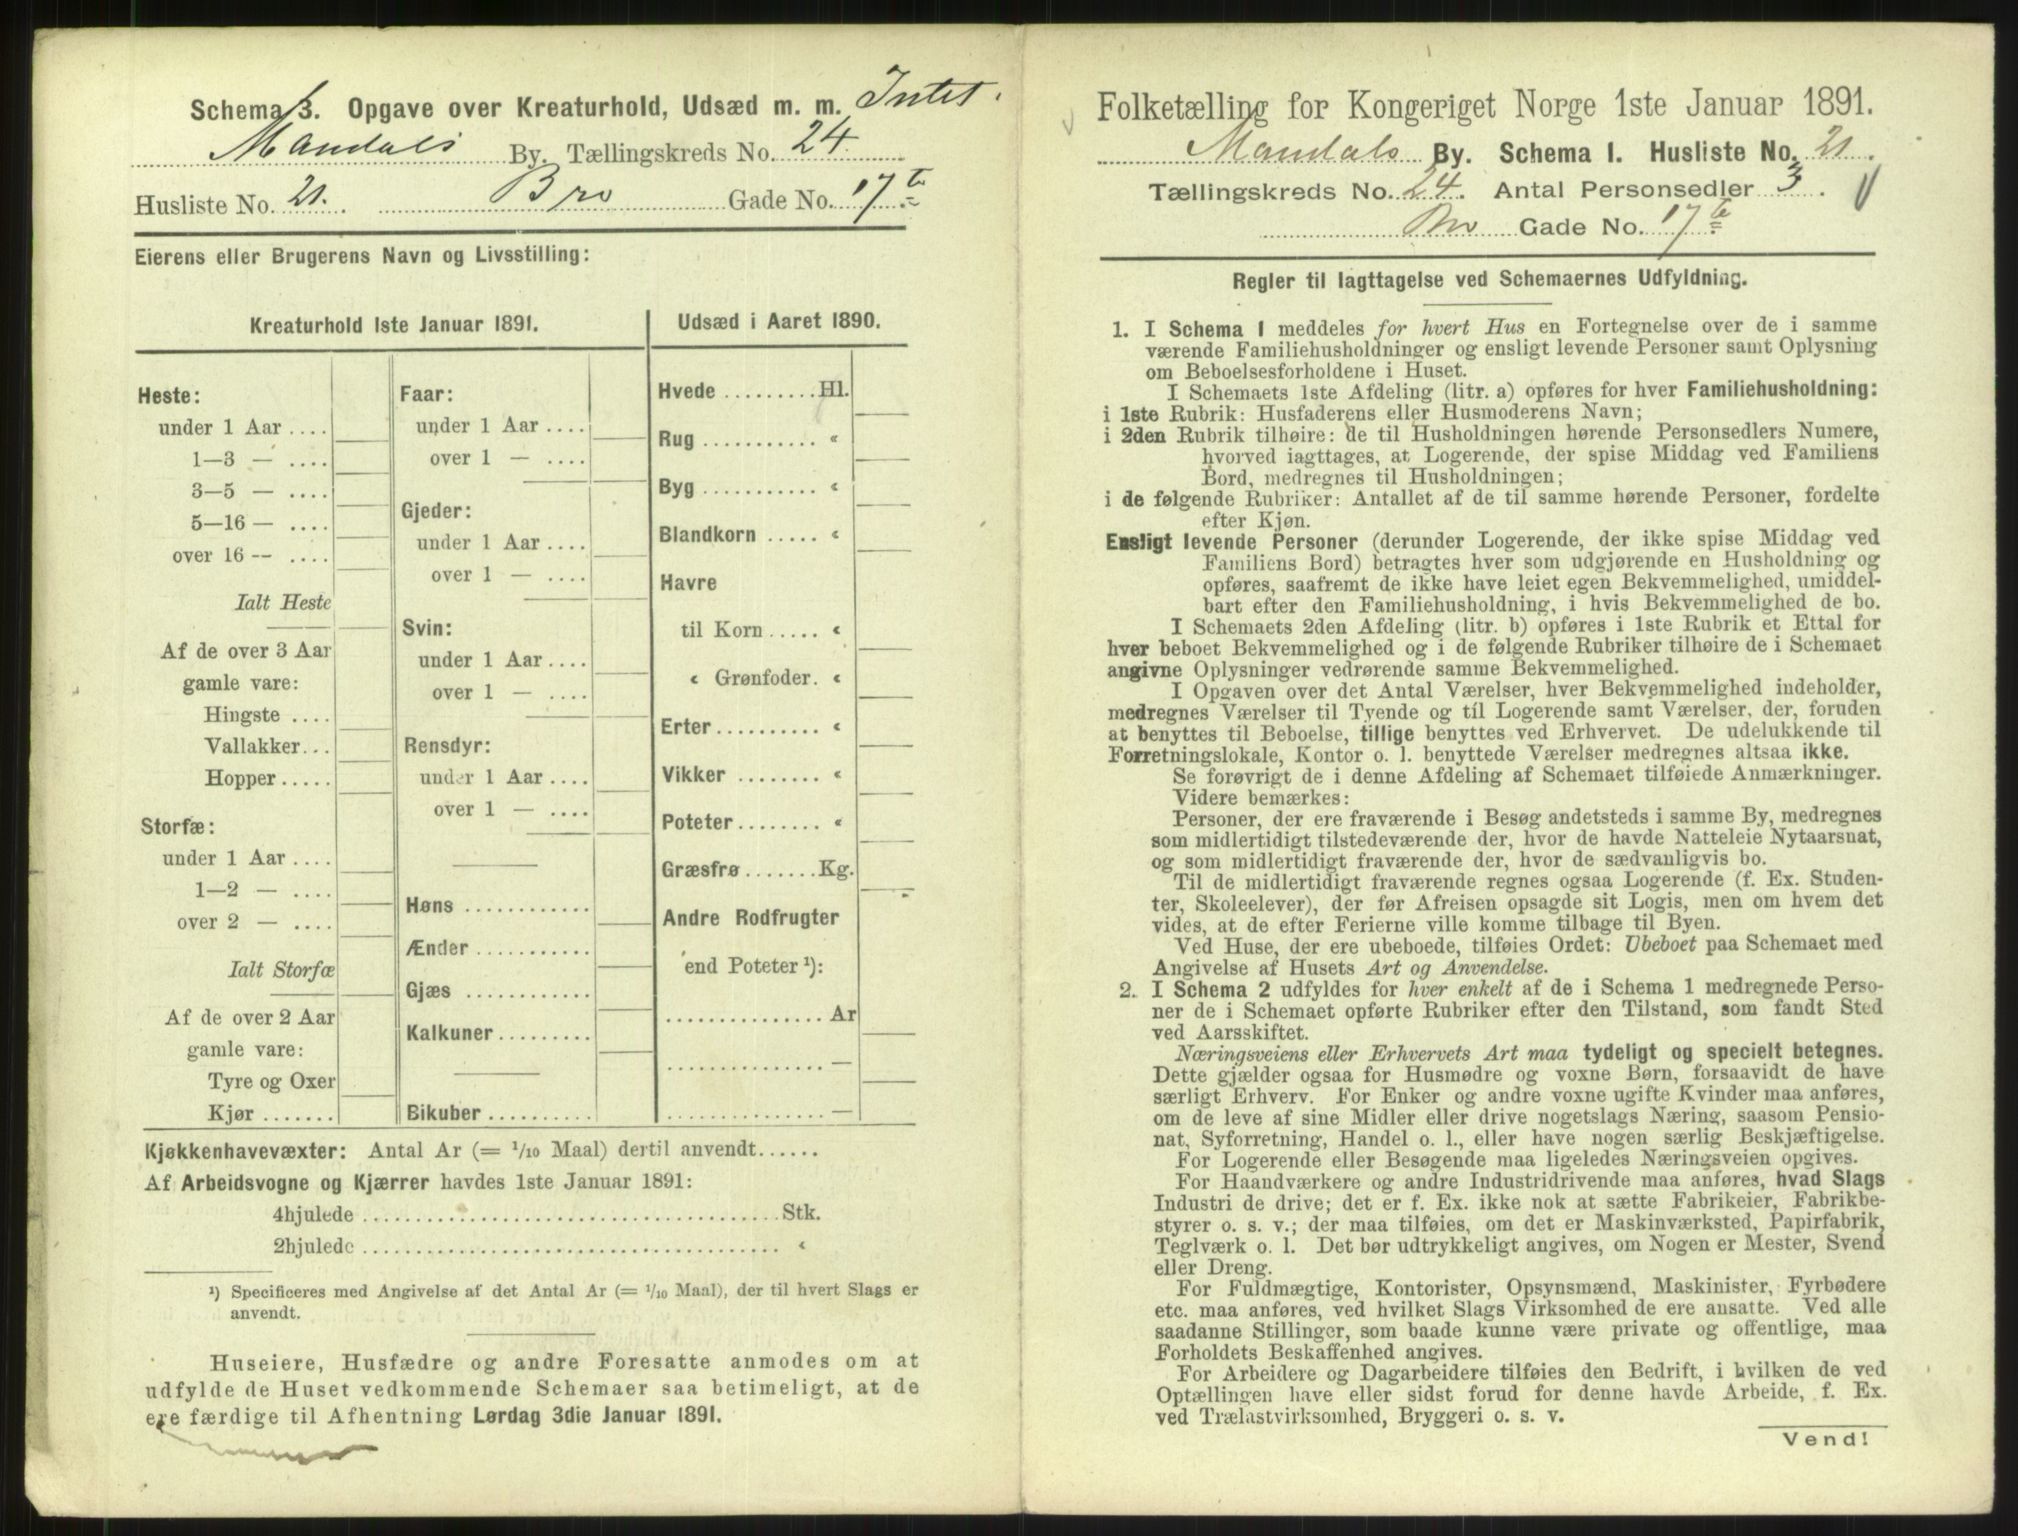 Schema 3. Opgave over Kreaturhold, Udsæd m. m. Intet.
Mandals By. Tællingskreds No. 24
Husliste No. 21. Bro Gade No. 17 b
Eierens eller Brugerens Navn og Livsstilling:
Kreaturhold 1ste Januar 1891.
Heste:
under 1 Aar ....
1—3 — ....
3—5 — ....
5—16 — ....
over 16 — ....
Ialt Heste
Af de over 3 Aar
gamle vare:
Hingste ....
Vallakker...
Hopper .....
Storfæ:
under 1 Aar ....
1—2 — ....
over 2 — ....
Ialt Storfæ
Af de over 2 Aar
gamle vare:
Tyre og Oxer
Kjør .......
Faar:
under 1 Aar ....
over 1 — ....
Gjeder:
under 1 Aar ....
over 1 — ....
Svin:
under 1 Aar ....
over 1 — ....
Rensdyr:
under 1 Aar ....
over 1 — ....
Høns ............
Ænder ...........
Gjæs ............
Kalkuner .........
Bikuber ..........
Udsæd i Aaret 1890.
Hvede .........Hl.
Rug ........... «
Byg ........... «
Blandkorn ..... «
Havre
til Korn ..... «
« Grønfoder. «
Erter.......... «
Vikker ........ «
Poteter ........ «
Græsfrø .......Kg.
Andre Rodfrugter
end Poteter ¹):
............... Ar
............... —
............... —
Kjøkkenhavevæxter: Antal Ar (= 1/10 Maal) dertil anvendt......
Af Arbeidsvogne og Kjærrer havdes 1ste Januar 1891:
4hjulede ........................................Stk.
2hjulede ........................................ «
¹) Specificeres med Angivelse af det Antal Ar (= 1/10 Maal), der til hvert Slags er
anvendt.
Huseiere, Husfædre og andre Foresatte anmodes om at
udfylde de Huset vedkommende Schemaer saa betimeligt, at de
ere færdige til Afhentning Lørdag 3die Januar 1891.
Folketælling for Kongeriget Norge 1ste Januar 1891.
Mandals By. Schema I. Husliste No. 21.
Tællingskreds No. 24. Antal Personsedler 3.
Bro Gade No. 17 b
Regler til Iagttagelse ved Schemaernes Udfyldning.
1. I Schema I meddeles for hvert Hus en Fortegnelse over de i samme
værende Familiehusholdninger og ensligt levende Personer samt Oplysning
om Beboelsesforholdene i Huset.
I Schemaets 1ste Afdeling (litr. a) opføres for hver Familiehusholdning:
i 1ste Rubrik: Husfaderens eller Husmoderens Navn;
i 2den Rubrik tilhøire: de til Husholdningen hørende Personsedlers Numere,
hvorved iagttages, at Logerende, der spise Middag ved Familiens
Bord, medregnes til Husholdningen;
i de følgende Rubriker: Antallet af de til samme hørende Personer, fordelte
efter Kjøn.
Ensligt levende Personer (derunder Logerende, der ikke spise Middag ved
Familiens Bord) betragtes hver som udgjørende en Husholdning og
opføres, saafremt de ikke have leiet egen Bekvemmelighed, umiddel-
bart efter den Familiehusholdning, i hvis Bekvemmelighed de bo.
I Schemaets 2den Afdeling (litr. b) opføres i 1ste Rubrik et Ettal for
hver beboet Bekvemmelighed og i de følgende Rubriker tilhøire de i Schemaet
angivne Oplysninger vedrørende samme Bekvemmelighed.
I Opgaven over det Antal Værelser, hver Bekvemmelighed indeholder,
medregnes Værelser til Tyende og til Logerende samt Værelser, der, foruden
at benyttes til Beboelse, tillige benyttes ved Erhvervet. De udelukkende til
Forretningslokale, Kontor o. l. benyttede Værelser medregnes altsaa ikke.
Se forøvrigt de i denne Afdeling af Schemaet tilføiede Anmærkninger.
Videre bemærkes:
Personer, der ere fraværende i Besøg andetsteds i samme By, medregnes
som midlertidigt tilstedeværende der, hvor de havde Natteleie Nytaarsnat,
og som midlertidigt fraværende der, hvor de sædvanligvis bo.
Til de midlertidigt fraværende regnes ogsaa Logerende (f. Ex. Studen-
ter, Skoleelever), der før Afreisen opsagde sit Logis, men om hvem det
vides, at de efter Ferierne ville komme tilbage til Byen.
Ved Huse, der ere ubeboede, tilføies Ordet: Ubeboet paa Schemaet med
Angivelse af Husets Art og Anvendelse.
2. I Schema 2 udfyldes for hver enkelt af de i Schema 1 medregnede Perso-
ner de i Schemaet opførte Rubriker efter den Tilstand, som fandt Sted
ved Aarsskiftet.
Næringsveiens eller Erhvervets Art maa tydeligt og specielt betegnes.
Dette gjælder ogsaa for Husmødre og voxne Børn, forsaavidt de have
særligt Erhverv. For Enker og andre voxne ugifte Kvinder maa anføres,
om de leve af sine Midler eller drive nogetslags Næring, saasom Pensio-
nat, Syforretning, Handel o. l., eller have nogen særlig Beskjæftigelse.
For Logerende eller Besøgende maa ligeledes Næringsveien opgives.
For Haandværkere og andre Industridrivende maa anføres, hvad Slags
Industri de drive; det er f. Ex. ikke nok at sætte Fabrikeier, Fabrikbe-
styrer o. s. v.; der maa tilføies, om det er Maskinværksted, Papirfabrik,
Teglværk o. l. Det bør udtrykkeligt angives, om Nogen er Mester, Svend
eller Dreng.
For Fuldmægtige, Kontorister, Opsynsmænd, Maskinister, Fyrbødere
etc. maa anføres, ved hvilket Slags Virksomhed de ere ansatte. Ved alle
saadanne Stillinger, som baade kunne være private og offentlige, maa
Forholdets Beskaffenhed angives.
For Arbeidere og Dagarbeidere tilføies den Bedrift, i hvilken de ved
Optællingen have eller sidst forud for denne havde Arbeide, f. Ex.
ved Trælastvirksomhed, Bryggeri o. s. v.
Vend!